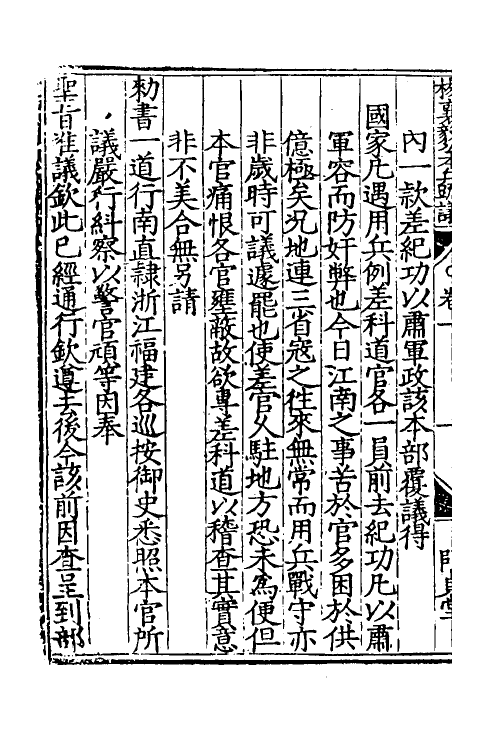 楊襄毅公本兵疏議 卷一
內一款差紀功以肅軍政該本部覆議得
國家凡遇用兵例差科道官各一員前去紀功凡以肅
軍容而防奸弊也今日江南之事苦於官多困於供
億極矣况地連三省寇之徃來無常而用兵戰守亦
非歲時可議遽罷也使差官久駐地方恐未爲便但
本官痛恨各官壅蔽故欲專差科道以稽查其實意
非不美合無另請
勑書一道行南直隷浙江福建各巡按御史悉照本官所
議嚴行糾察以警官頑等因奉
聖旨准議欽此已經通行欽遵去後今該前因查呈到部